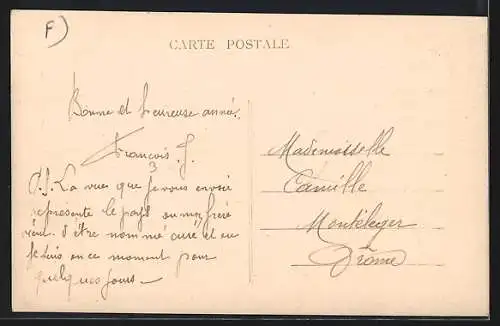 F)
CARTE POSTALE
Bonne et heureuse année.
François. J.
P.S. La vue que je vous envoie
représente le pays ou mon frère
vient d'être nommé curé et ou
je suis en ce moment pour
quelques jours —
Mademoiselle
Camille
Montéléger
Drôme